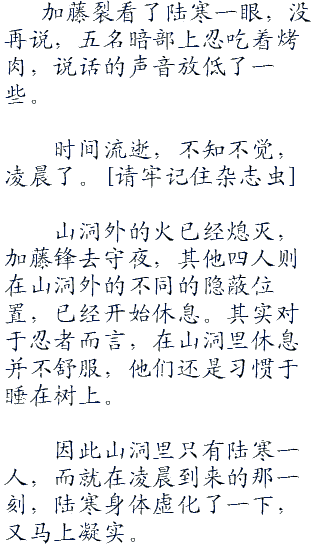 加藤裂看了陆寒一眼，没
再说，五名暗部上忍吃着烤
肉，说话的声音放低了一
些。
时间流逝，不知不觉，
凌晨了。[请牢记住杂志虫]
山洞外的火已经熄灭，
加藤锋去守夜，其他四人则
在山洞外的不同的隐蔽位
置，已经开始休息。其实对
于忍者而言，在山洞里休息
并不舒服，他们还是习惯于
睡在树上。
因此山洞里只有陆寒一
人，而就在凌晨到来的那一
刻，陆寒身体虚化了一下，
又马上凝实。